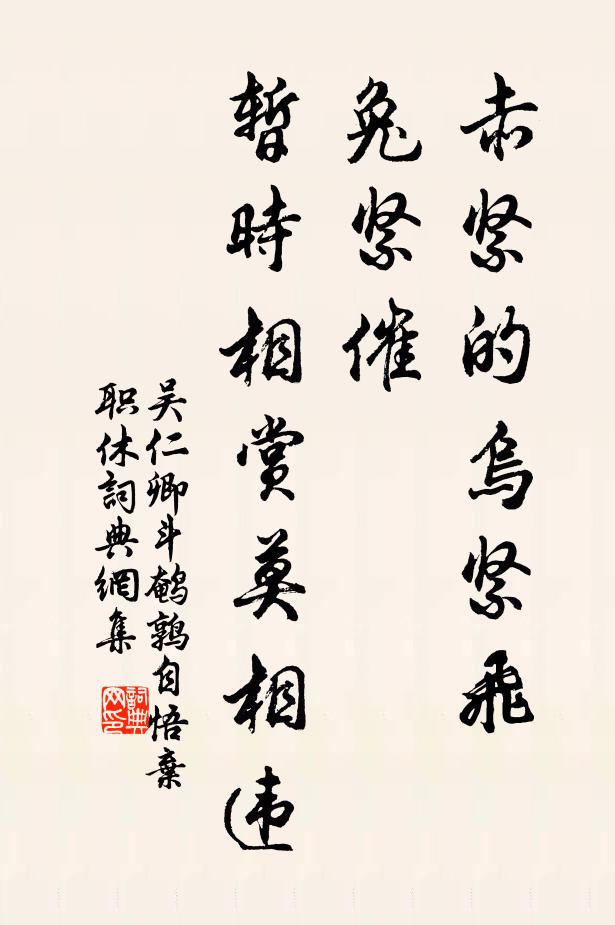 赤紧的乌紧飞
兔紧催
暂時相赏莫相违
吴仁卿斗鹌鹑自悟棄
职休詞典網集
詞典网印